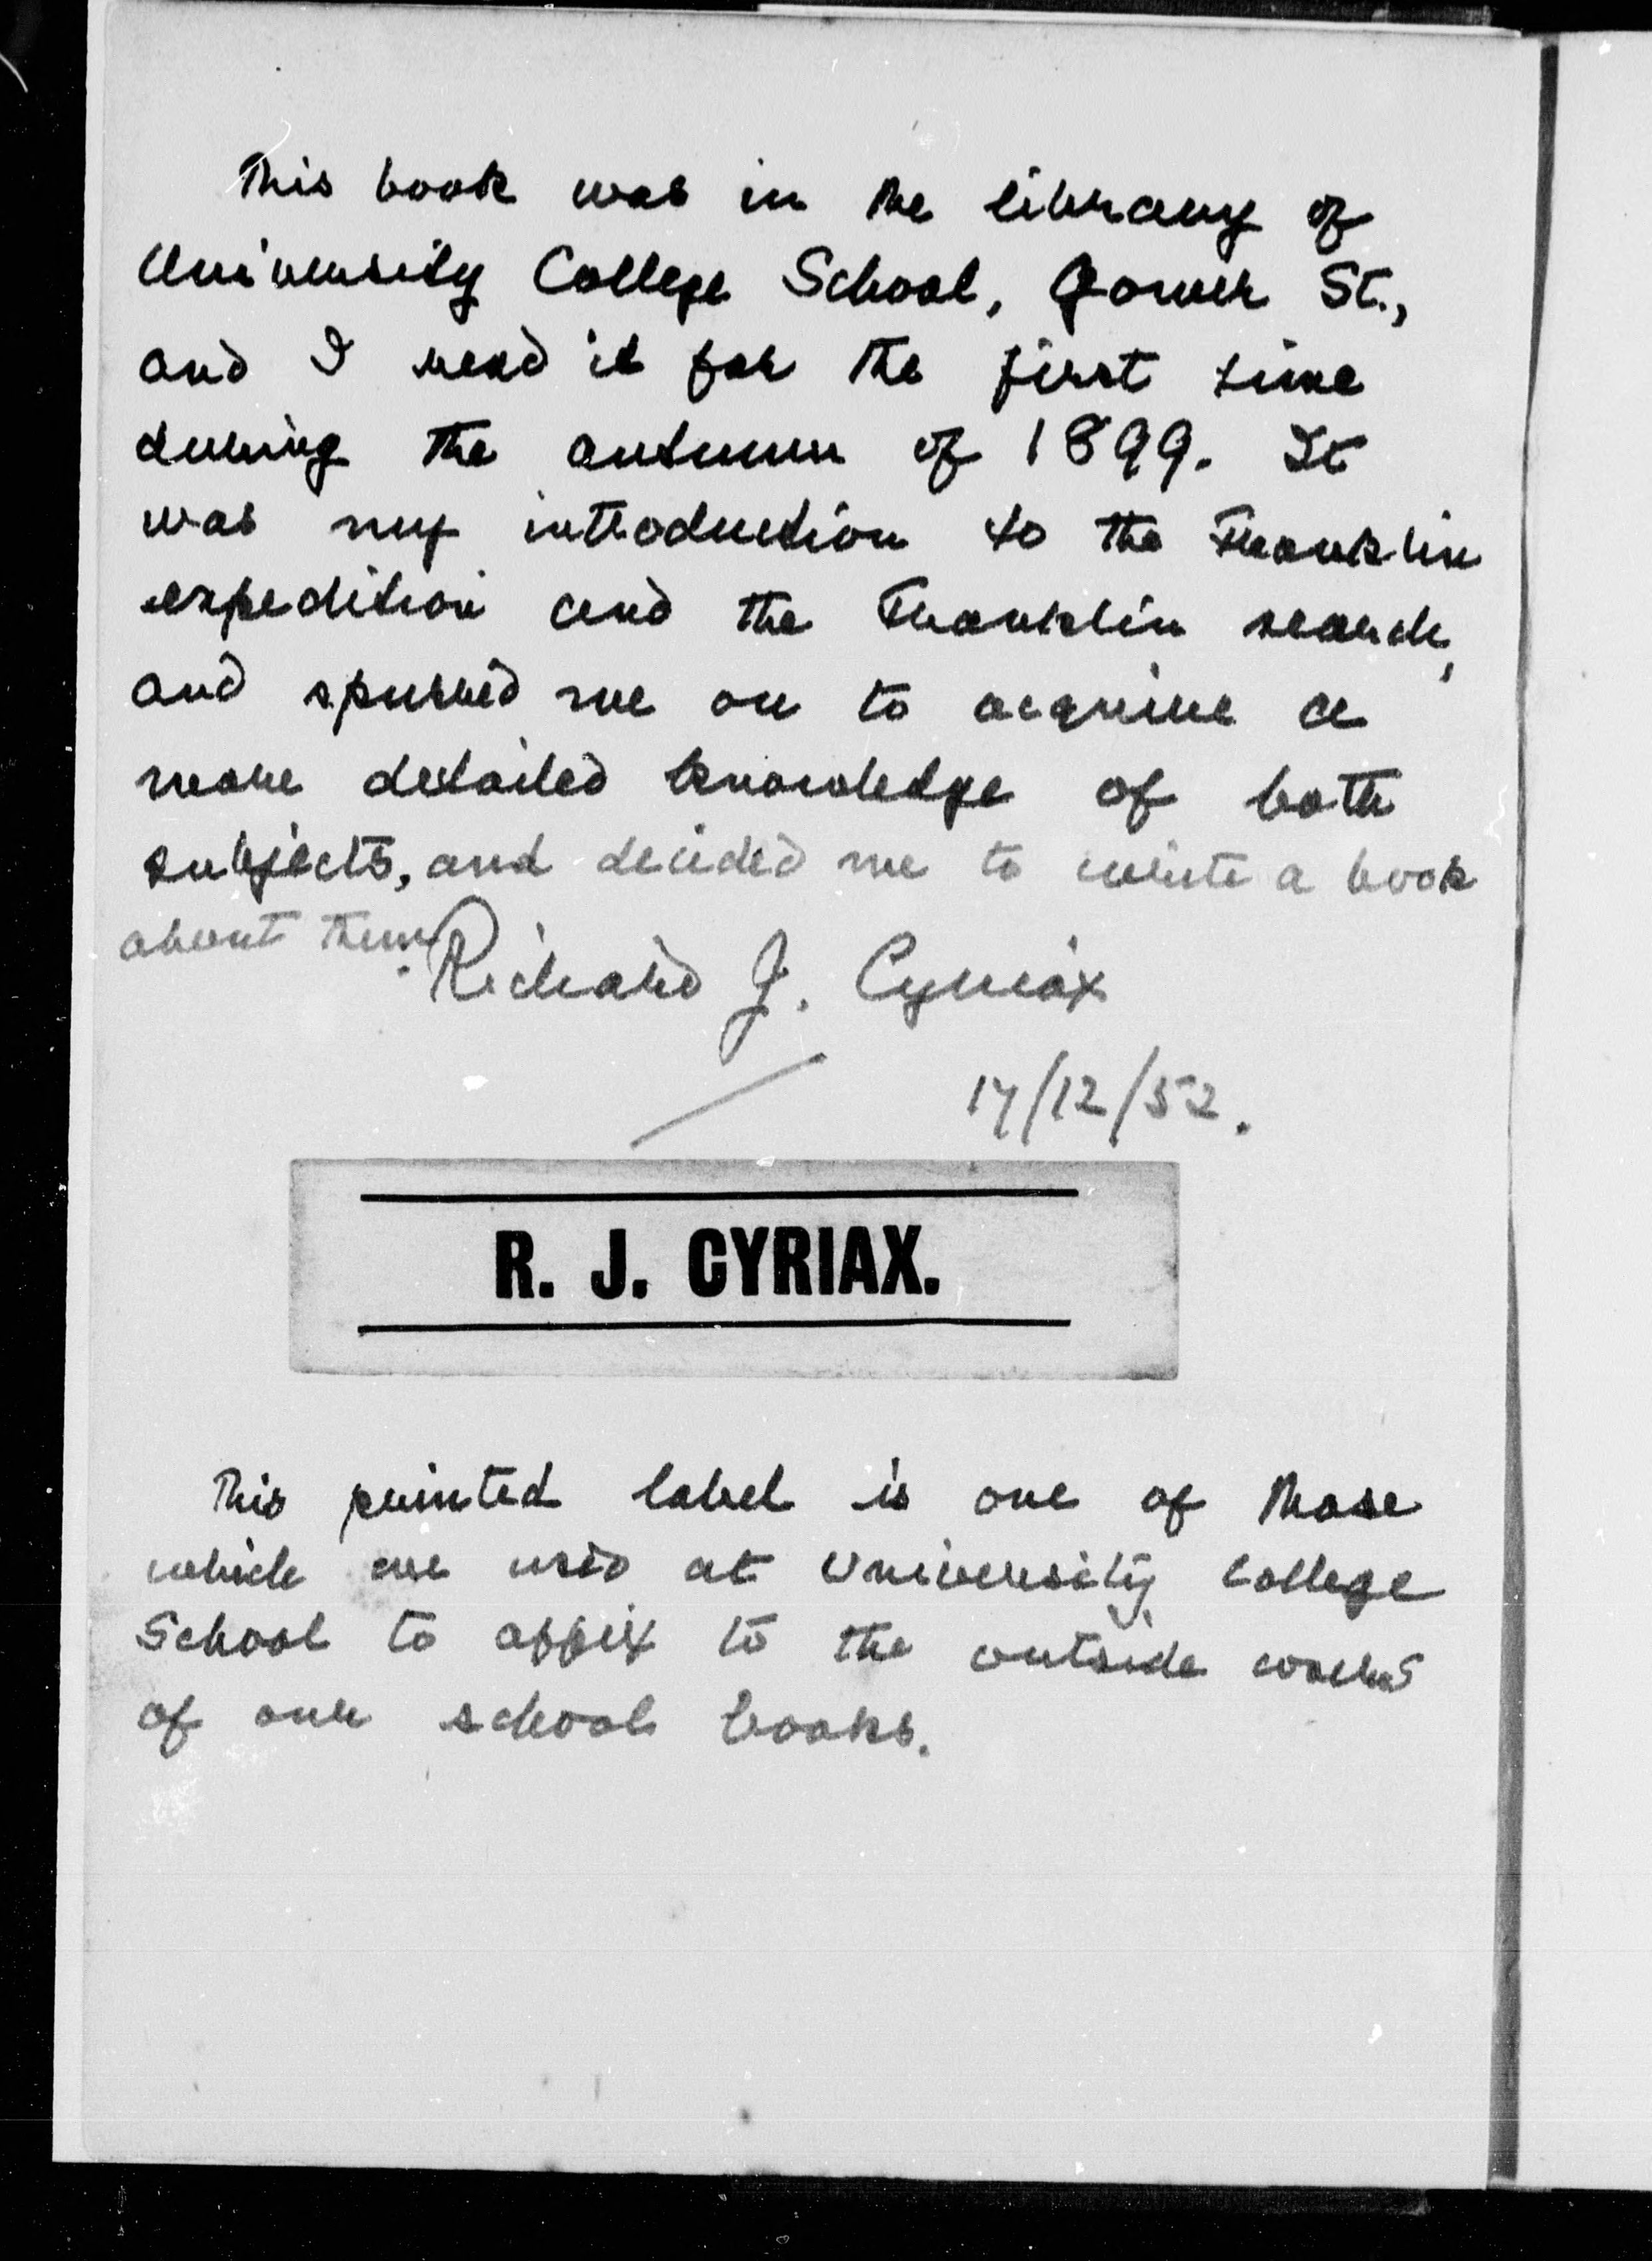 This book was in the library of
University College School, Gower St.,
and I read it for the first time
during the autumn of 1899. It
was my introduction to the Franklin
expedition and the Franklin search,
and spurred me on to acquire a
more detailed knowledge of both
subjects, and decided me to write a book
about them.
Richard J. Cyriax
17/12/52.
R. J. CYRIAX.
This printed label is one of those
which we used at University College
School to affix to the outside covers
of our school books.